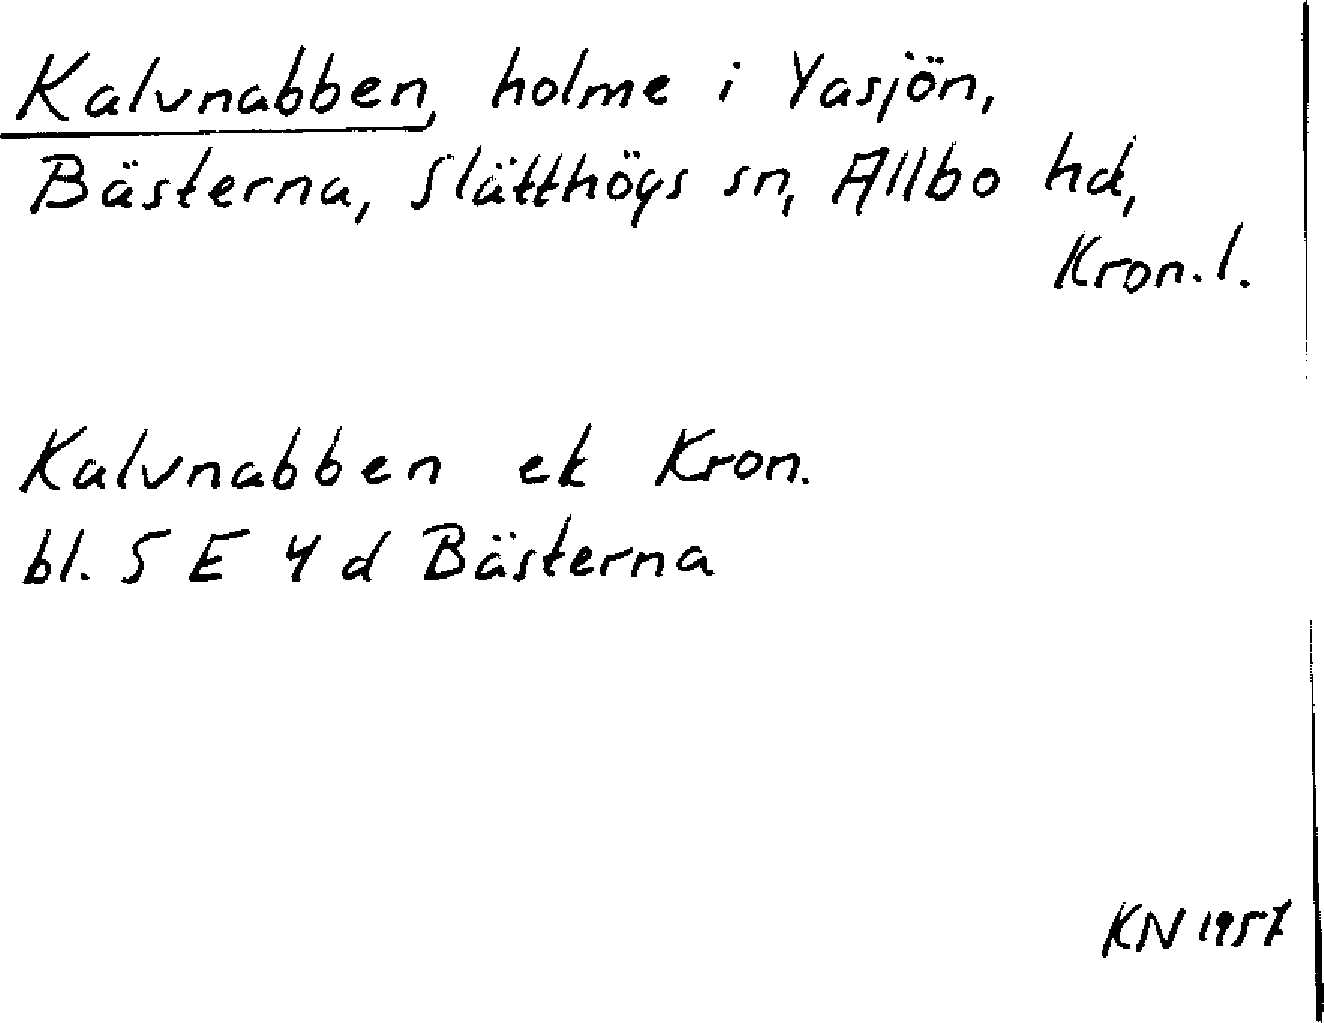 Kalvnabben, holme i Yasjön,
Bästerna, Slätthögs sn, Allbo hd,
Kron. l.
Kalvnabben ek Kron.
bl. 5 E 4 d Bästerna
KN 1957